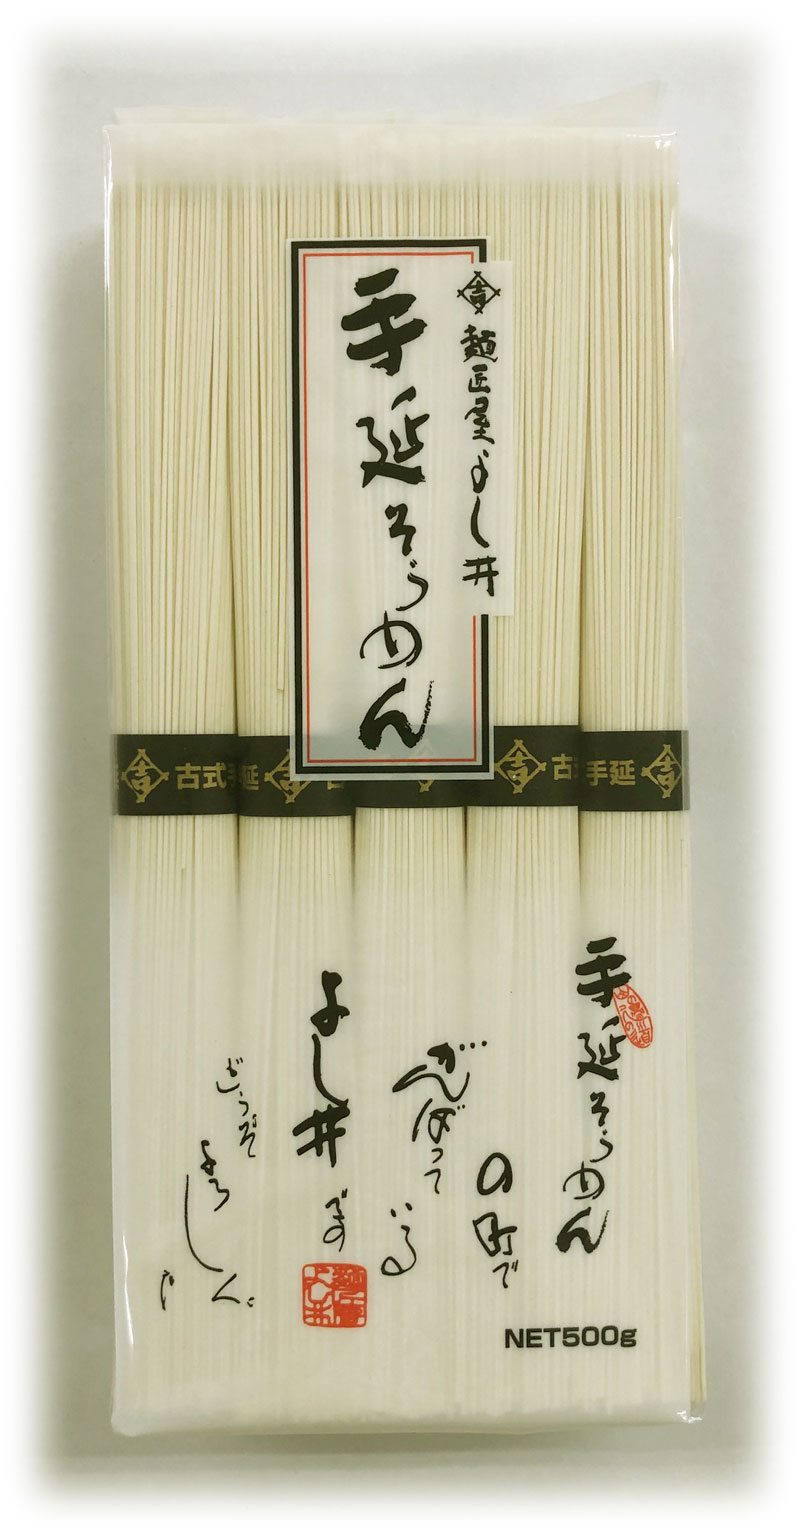 吉 麺匠屋よし井
手延そうめん
吉 古式手延 吉
吉 古式手延 吉
手延そうめん
の町で
がんばって
いる
よし井
です
どうぞ
よろしく
NET500g